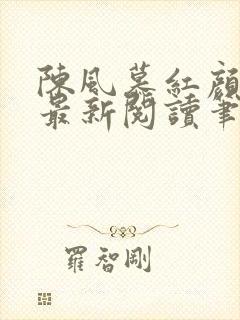 陳風慕紅顏
最新閱讀筆
羅智剛